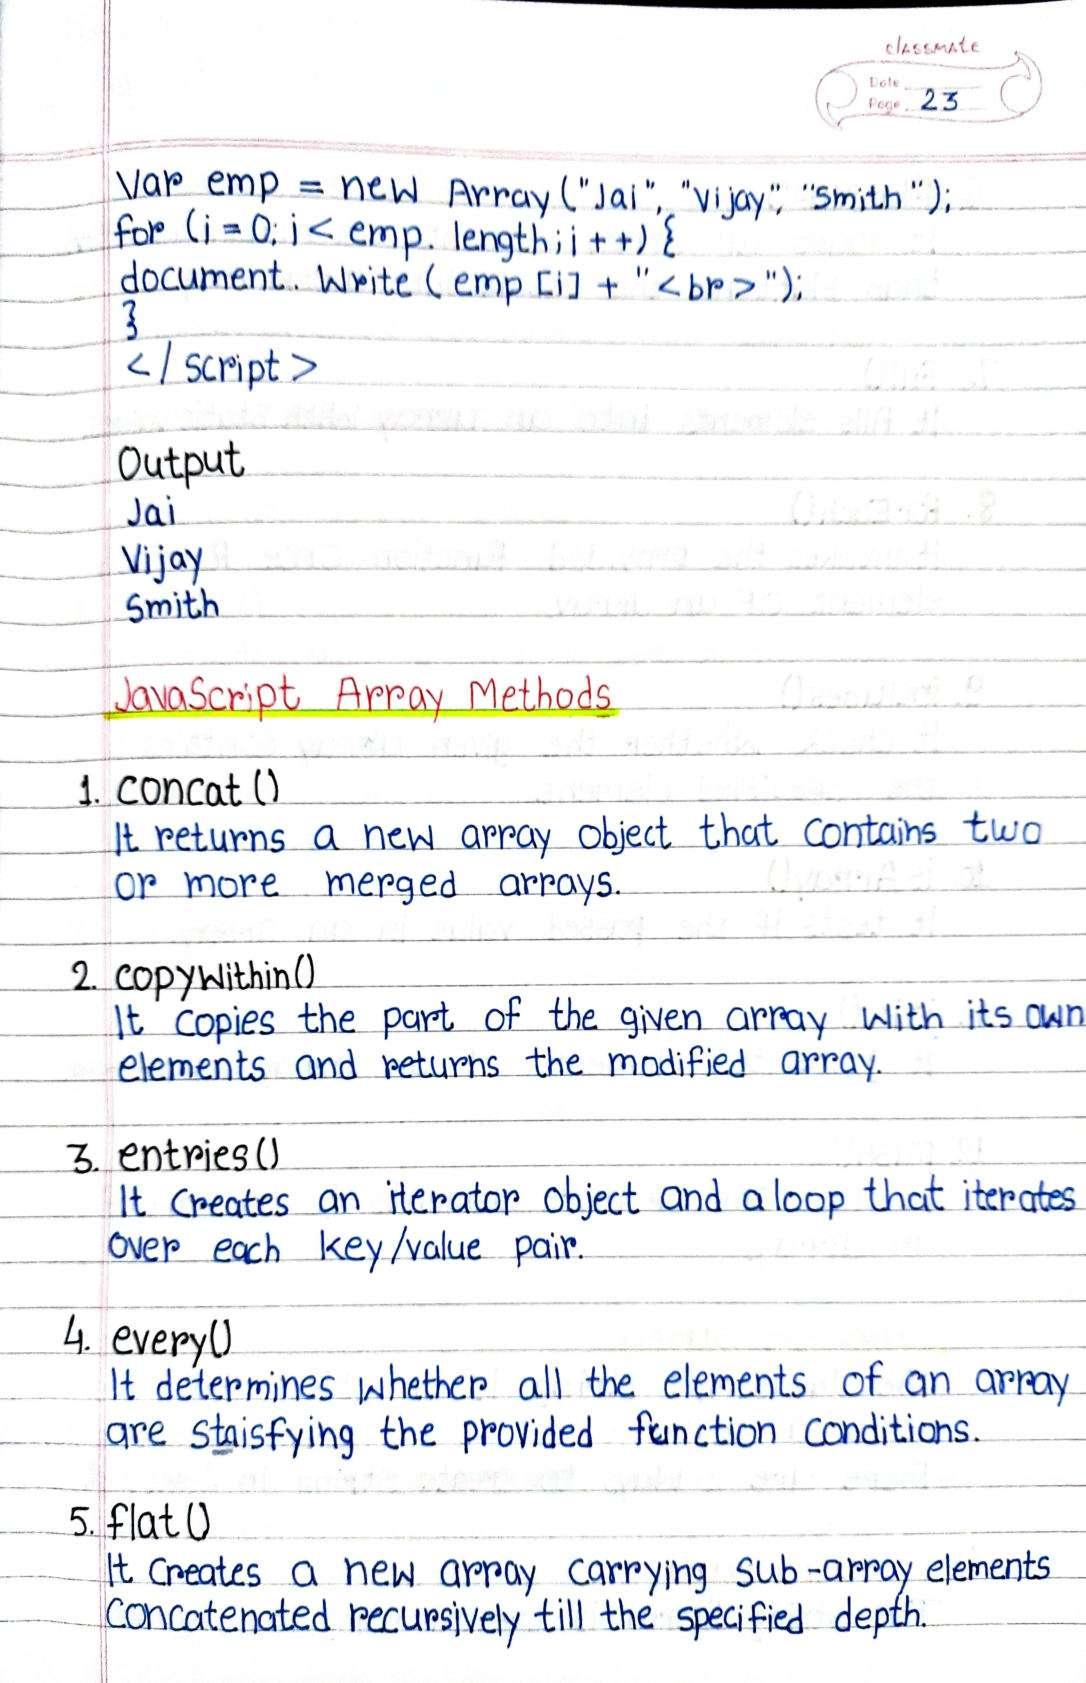 classmate
Date
Page 23
Var emp = new Array ("Jai", "Vijay", "Smith");
for (i = 0; i < emp. length; i + +) {
document. Write ( emp [i] + "<br>");
}
</ script >
Output
Jai
Vijay
Smith
JavaScript Array Methods
1. concat ()
It returns a new array object that contains two
or more merged arrays.
2. copyWithin()
It copies the part of the given array with its own
elements and returns the modified array.
3. entries ()
It creates an iterator object and a loop that iterates
over each key/value pair.
4. every()
It determines whether all the elements of an array
are staisfying the provided function conditions.
5. flat ()
It creates a new array carrying sub-array elements
concatenated recursively till the specified depth.